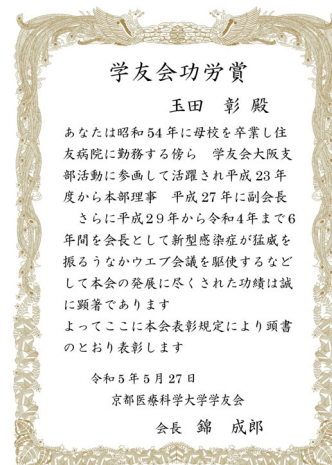 学友会功労賞
玉田 彰 殿
あなたは昭和54年に母校を卒業し住
友病院に勤務する傍ら 学友会大阪支
部活動に参画して活躍され平成23年
度から本部理事 平成27年に副会長
さらに平成29年から令和4年まで6
年間を会長として新型感染症が猛威を
振るうなかウエブ会議を駆使するなど
して本会の発展に尽くされた功績は誠
に顕著であります
よってここに本会表彰規定により頭書
のとおり表彰します
令和5年5月27日
京都医療科学大学学友会
会長 錦 成郎